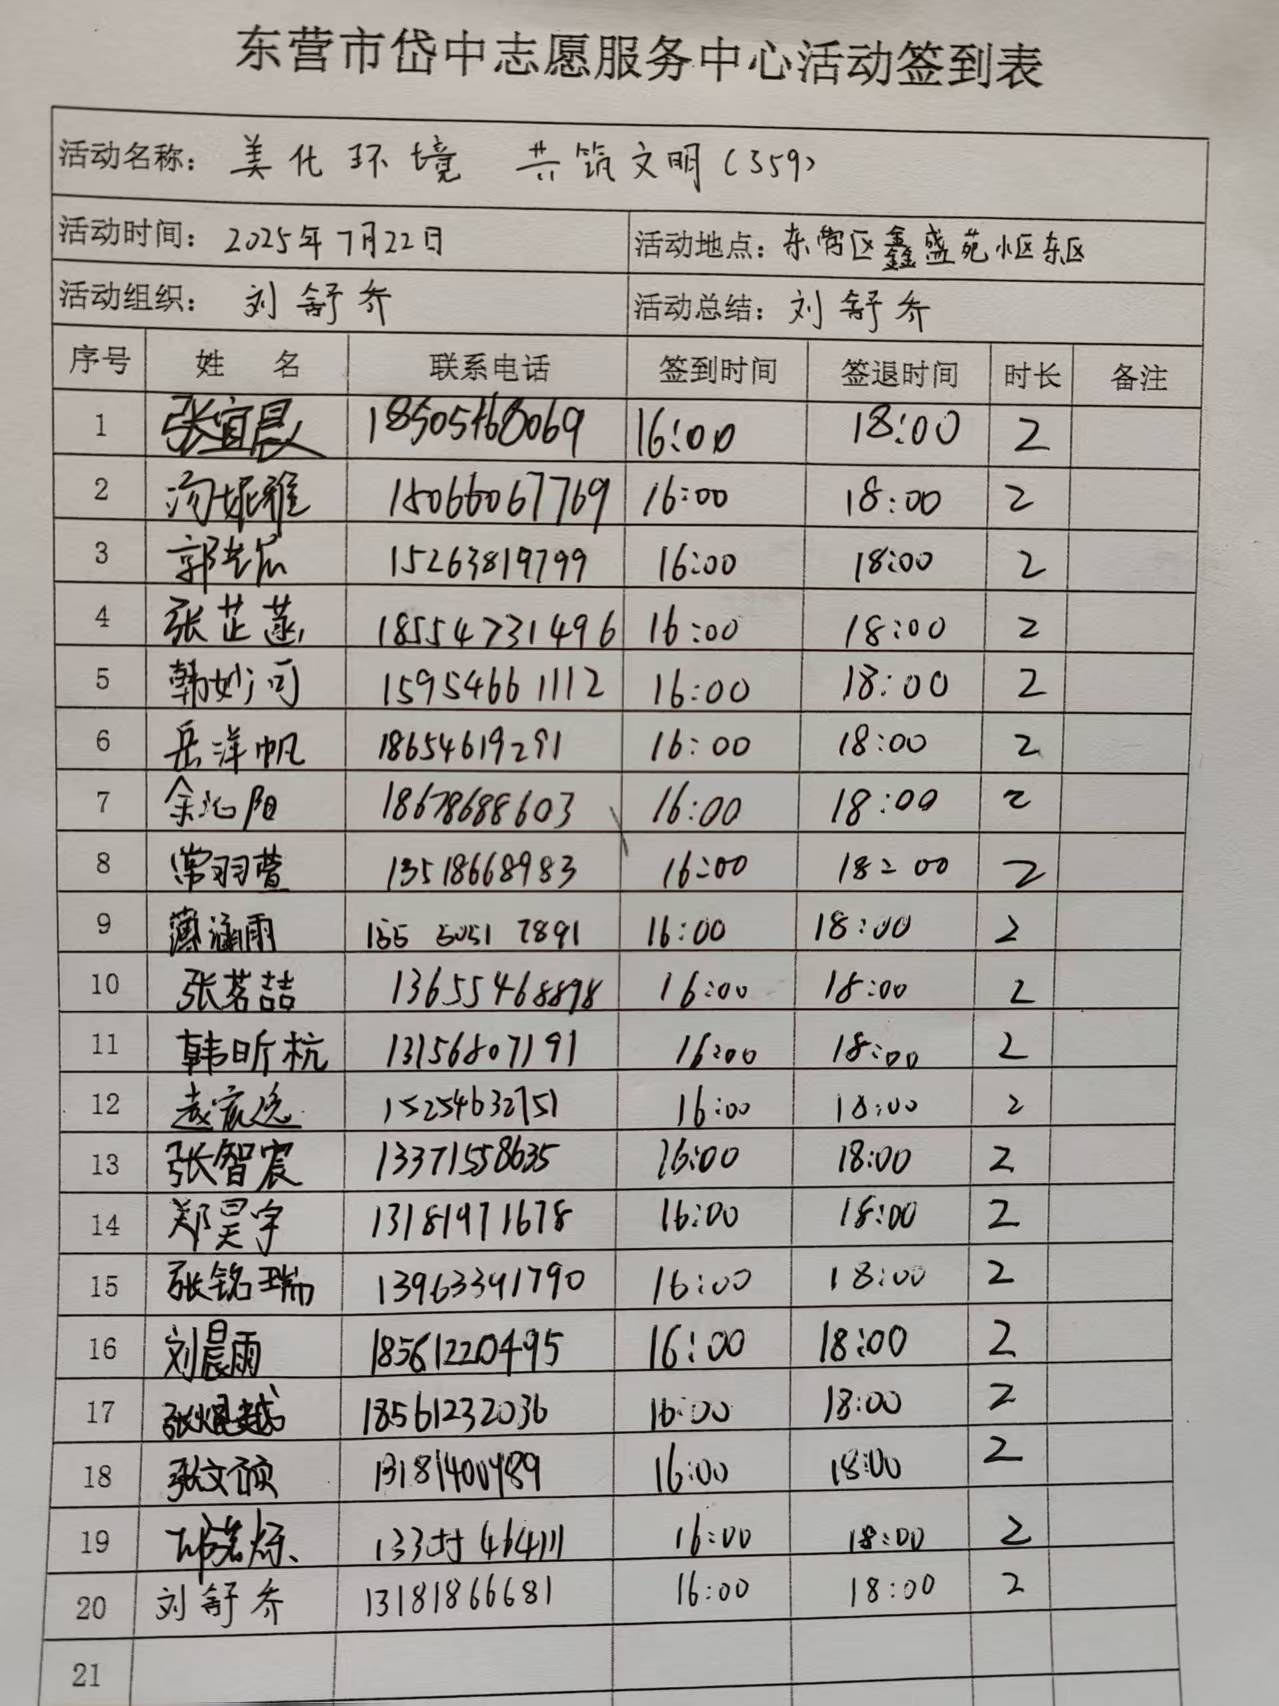 东营市岱中志愿服务中心活动签到表
活动名称： 美化环境 共筑文明（359）
活动时间： 2025年7月22日 活动地点： 东营区鑫盛苑小区东区
活动组织： 刘舒乔 活动总结： 刘舒乔
序号 姓 名 联系电话 签到时间 签退时间 时长 备注
1 张宜晨 18505468069 16:00 18:00 2
2 15066067769 16:00 18:00 2
3 15263819799 16:00 18:00 2
4 张芷菡 18554731496 16:00 18:00 2
5 韩妙河 15954661112 16:00 18:00 2
6 岳洋帆 18654619291 16:00 18:00 2
7 余沁阳 18678688603 16:00 18:00 2
8 常羽萱 13518668983 16:00 18:00 2
9 薄涵雨 16:00 18:00 2
10 张茗喆 13655468898 16:00 18:00 2
11 韩昕杭 13156807191 16:00 18:00 2
12 15254632751 16:00 18:00 2
13 张智宸 13371558635 16:00 18:00 2
14 郑昊宇 13181971678 16:00 18:00 2
15 张铭瑞 13963341790 16:00 18:00 2
16 刘晨雨 18561220495 16:00 18:00 2
17 18561232036 16:00 18:00 2
18 张文硕 13181400489 16:00 18:00 2
19 16:00 18:00 2
20 刘舒乔 13181866681 16:00 18:00 2
21